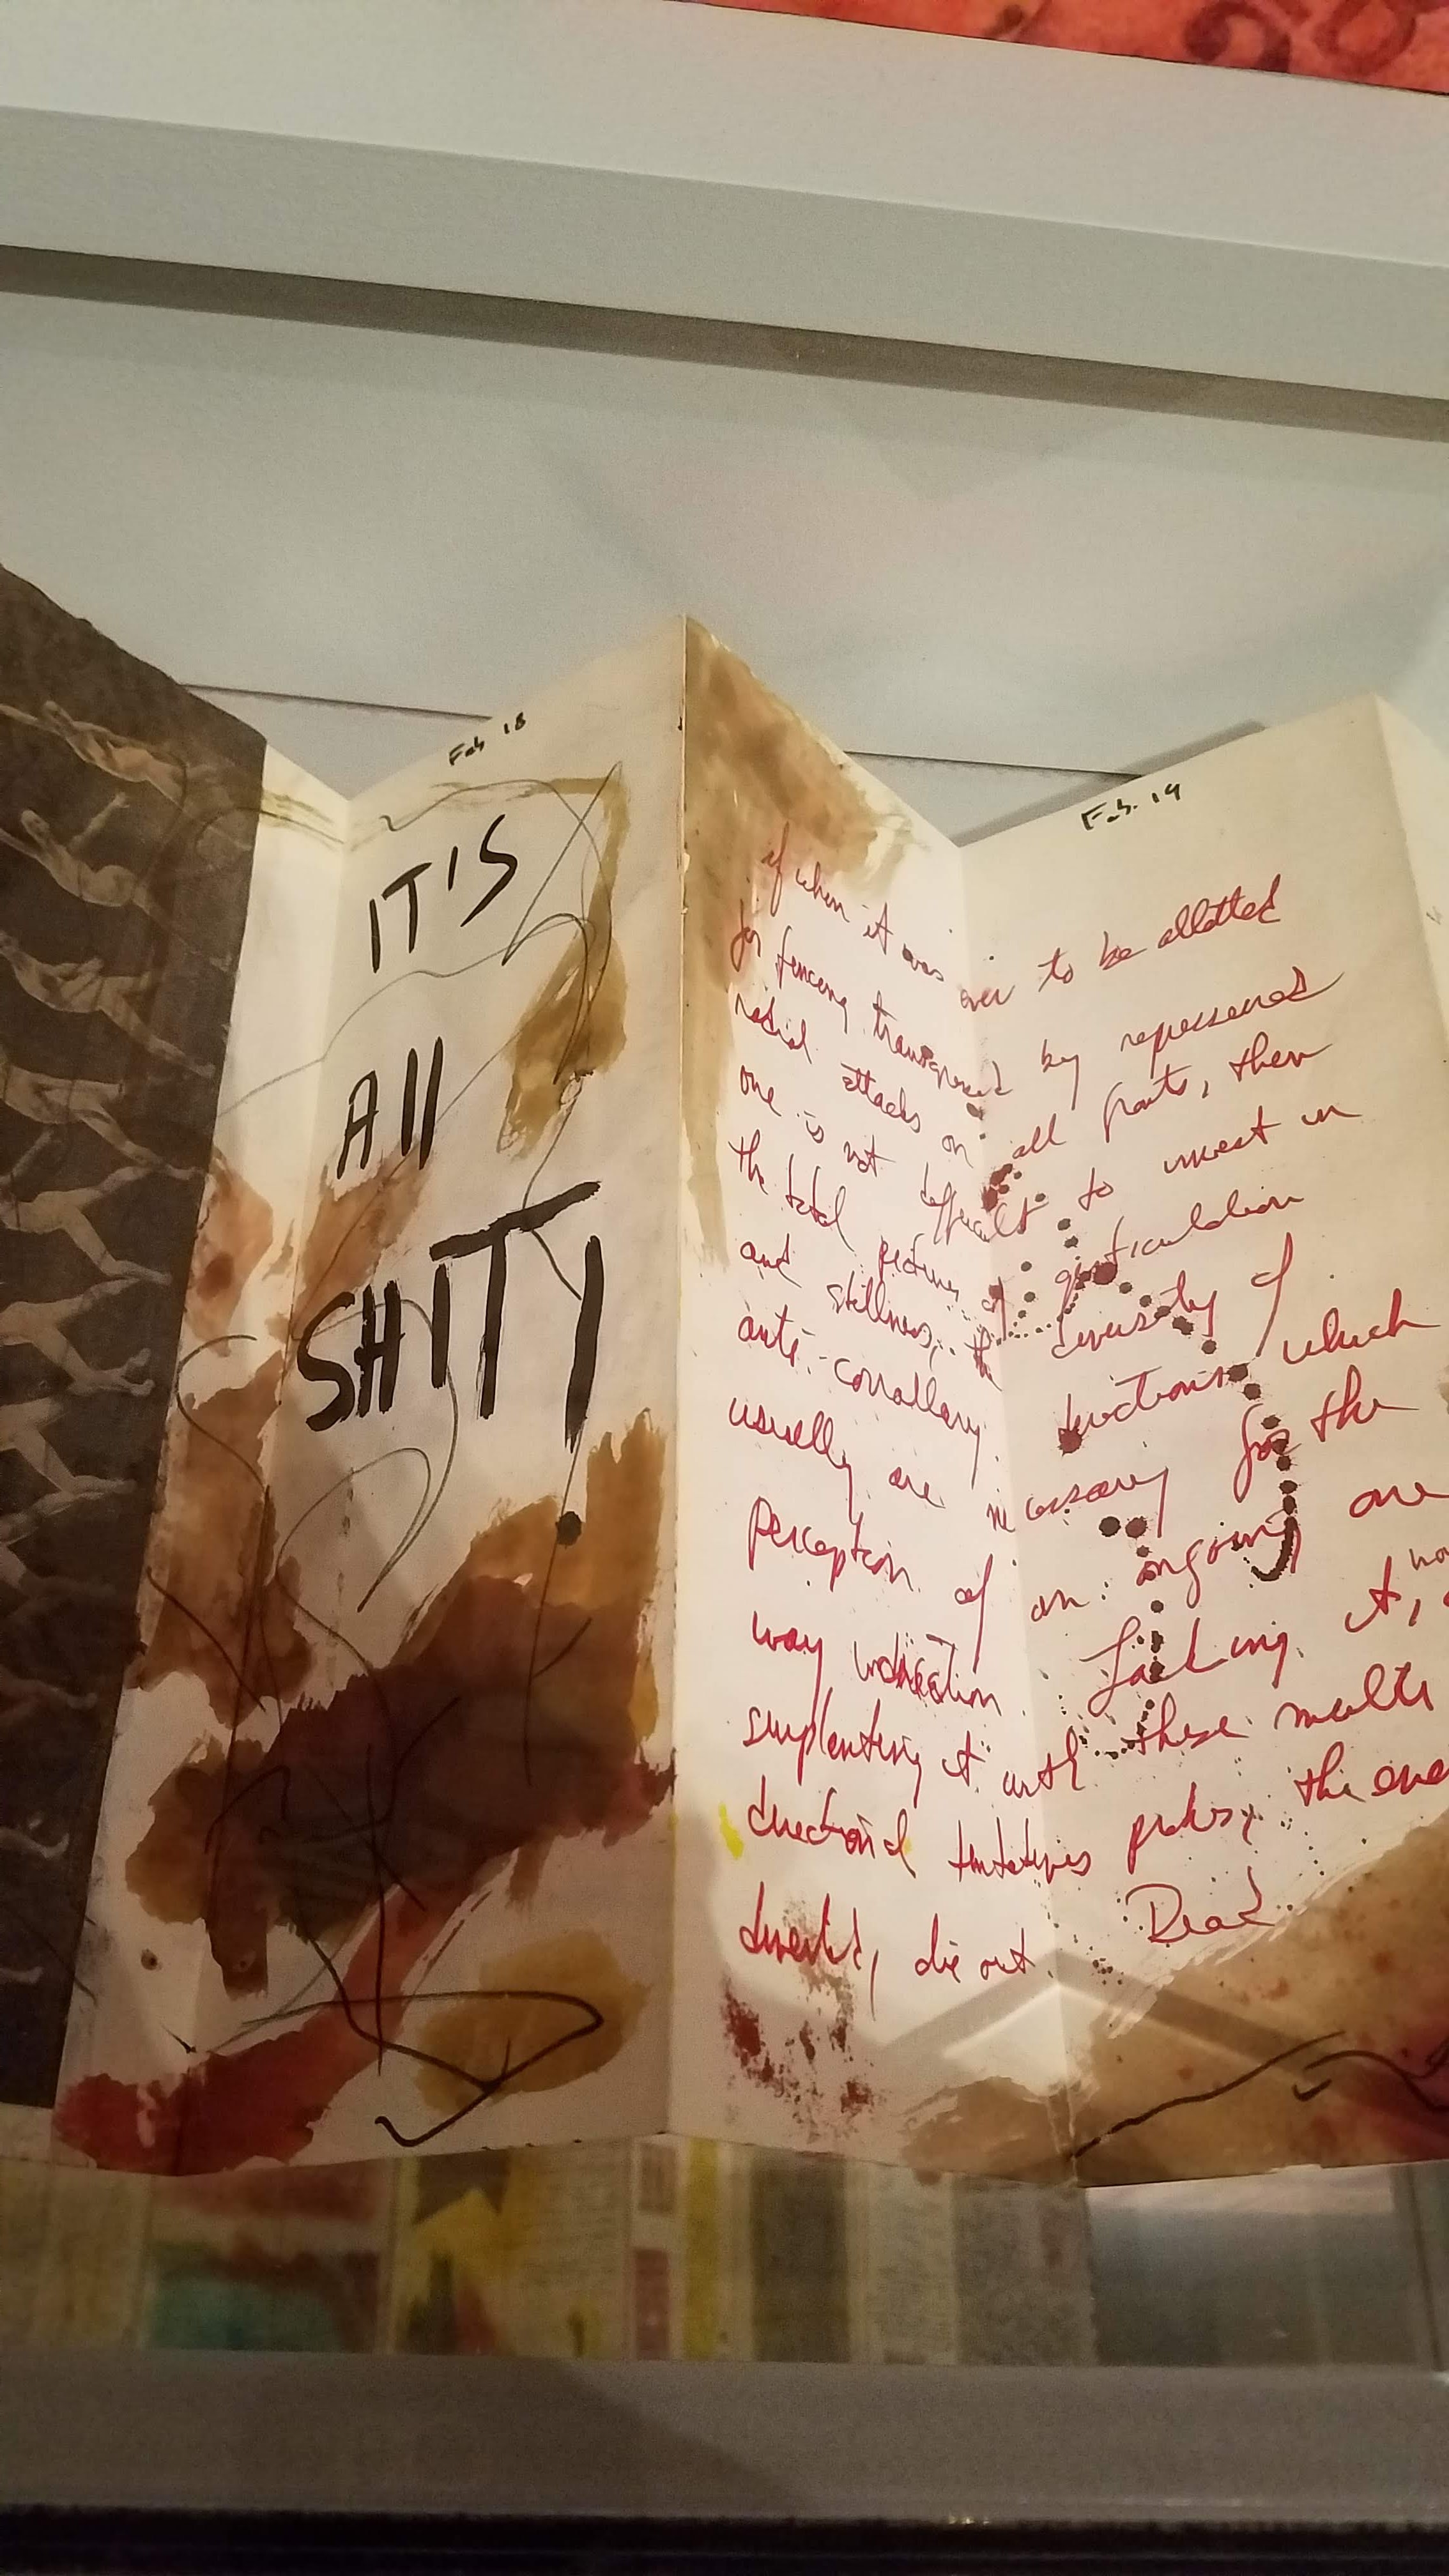 Feb 18
IT'S
All
SHITY
Feb. 19
if when it was ever to be allotted
for fencing by
radial attacks on all fronts, then
one is not difficult to invest in
the total picture of gesticulation
and stillness; the diversity of
anti-corollary directions which
usually are necessary for the
perception of an ongoing one
way indication. Lacking it,
suplanting it with these multi
directional tentatives probes, the
die out. Dead.